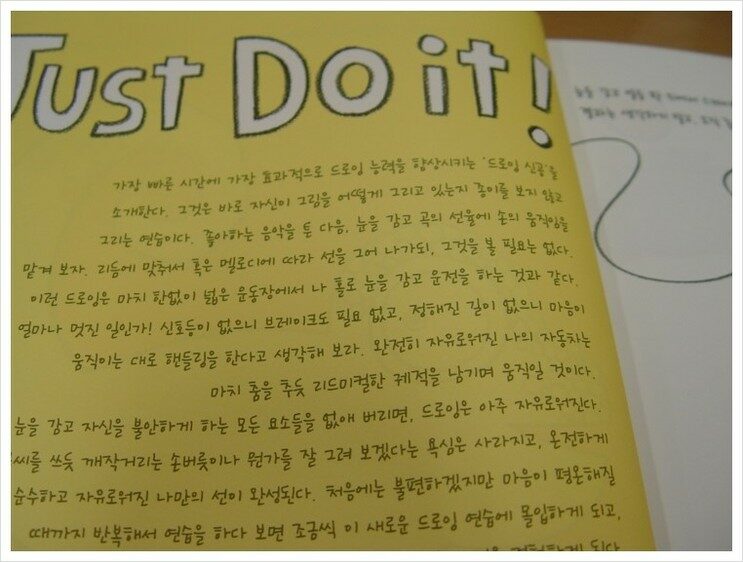 Just Do it!
가장 빠른 시간에 가장 효과적으로 드로잉 능력을 향상시키는 '드로잉 신공'을
소개한다. 그것은 바로 자신이 그림을 어떻게 그리고 있는지 종이를 보지 않고
그리는 연습이다. 좋아하는 음악을 튼 다음, 눈을 감고 곡의 선율에 손의 움직임을
맡겨 보자. 리듬에 맞춰서 혹은 멜로디에 따라 선을 그어 나가되, 그것을 볼 필요는 없다.
이런 드로잉은 마치 한없이 넓은 운동장에서 나 홀로 눈을 감고 운전을 하는 것과 같다.
얼마나 멋진 일인가! 신호등이 없으니 브레이크도 필요 없고, 정해진 길이 없으니 마음이
움직이는 대로 핸들링을 한다고 생각해 보라. 완전히 자유로워진 나의 자동차는
마치 춤을 추듯 리드미컬한 궤적을 남기며 움직일 것이다.
눈을 감고 자신을 불안하게 하는 모든 요소들을 없애 버리면, 드로잉은 아주 자유로워진다.
씨를 쓰듯 깨작거리는 손버릇이나 뭔가를 잘 그려 보겠다는 욕심은 사라지고, 온전하게
순수하고 자유로워진 나만의 선이 완성된다. 처음에는 불편하겠지만 마음이 평온해질
때까지 반복해서 연습을 하다 보면 조금씩 이 새로운 드로잉 연습에 몰입하게 되고,
눈을 감고